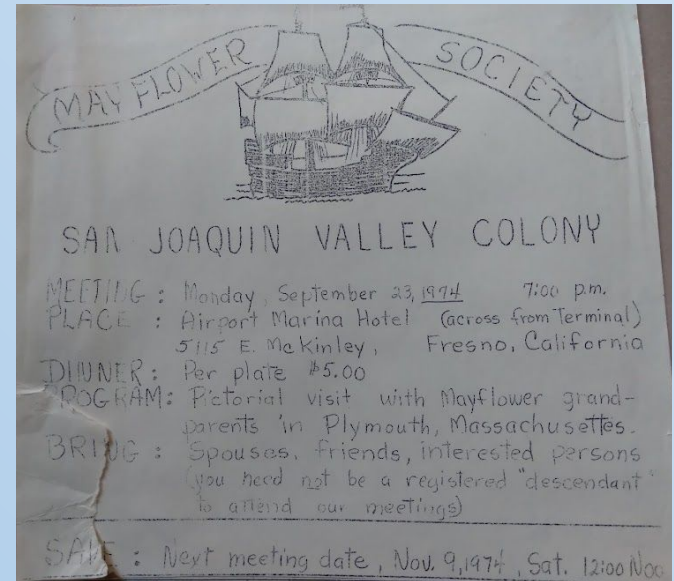 MAYFLOWER SOCIETY
SAN JOAQUIN VALLEY COLONY
MEETING : Monday, September 23, 1974 7:00 p.m.
PLACE : Airport Marina Hotel (across from Terminal)
5115 E. McKinley, Fresno, California
DINNER : Per plate $5.00
PROGRAM: Pictorial visit with Mayflower grand-
parents in Plymouth, Massachusettes.
BRING : Spouses, friends, interested persons
(you need not be a registered "descendant"
to attend our meetings)
SAVE : Next meeting date, Nov. 9, 1974, Sat. 12:00 Noo